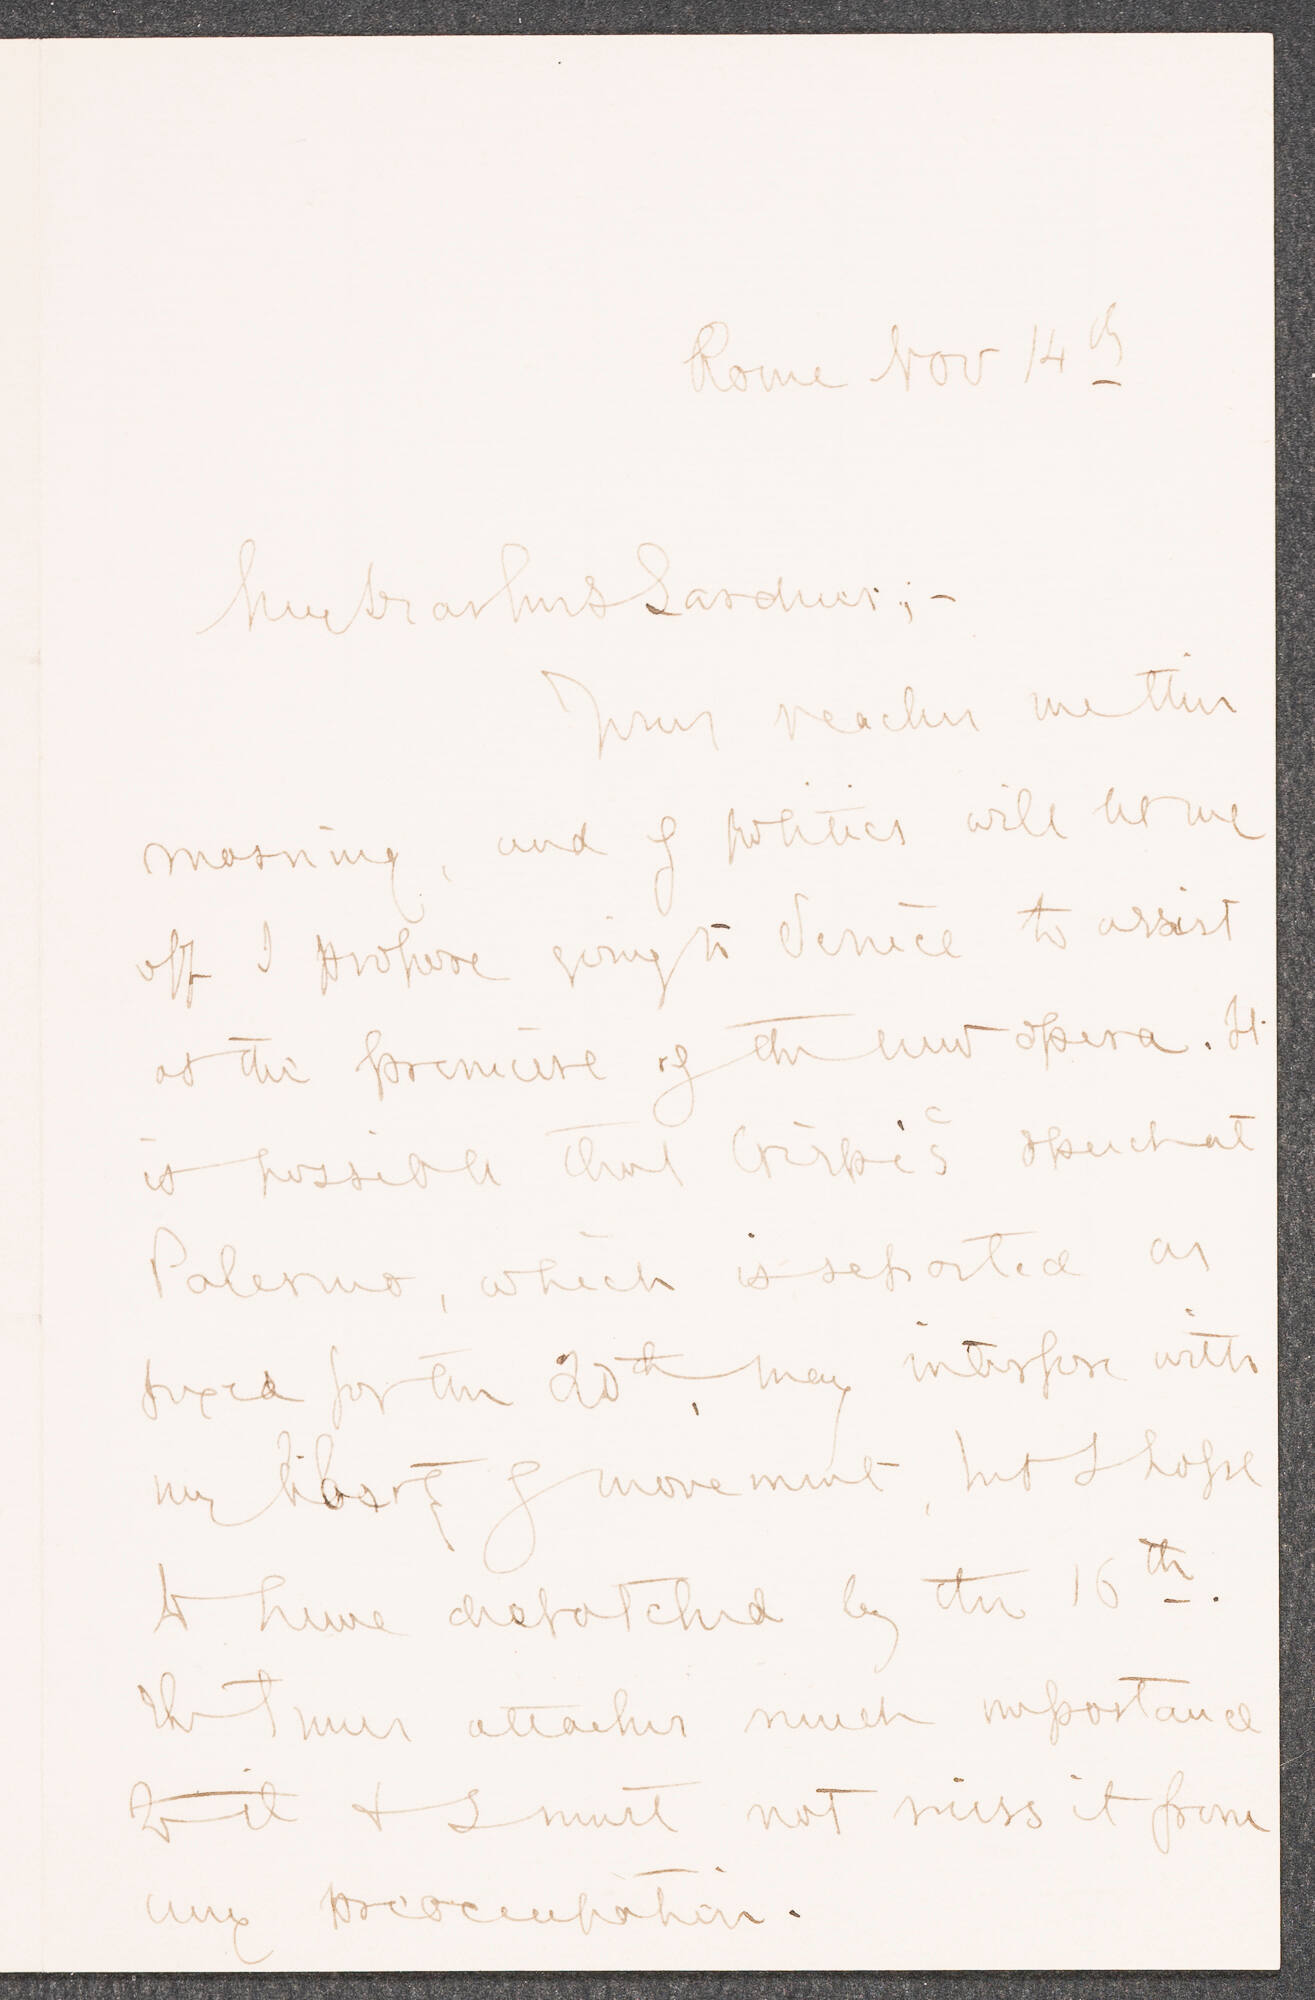 Rome Nov 14th
My dear Mrs Gardner;-
Yours reaches me this
morning, and if politics will let me
off I propose going to Venice to assist
at the premiere of the new opera. It
is possible that Crispi's speech at
Palermo, which is reported as
fixed for the 20th, may interfere with
my liberty of movement, but I hope
to have dispatched by the 16th.
The Times attaches much importance
to it & I must not miss it from
any preoccupation.